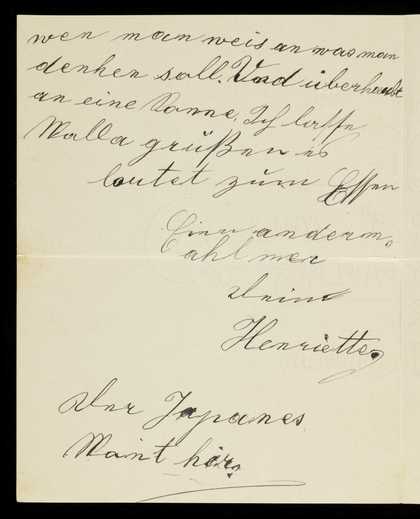 wen man weis an was man
denken soll. Und überhaubt
an eine Tonne. Ich lasse
Walla grüßen es
loutet zum Essen
Einn anderm
mer
Deine
Henriette.
Der Japanes
Maint hir.